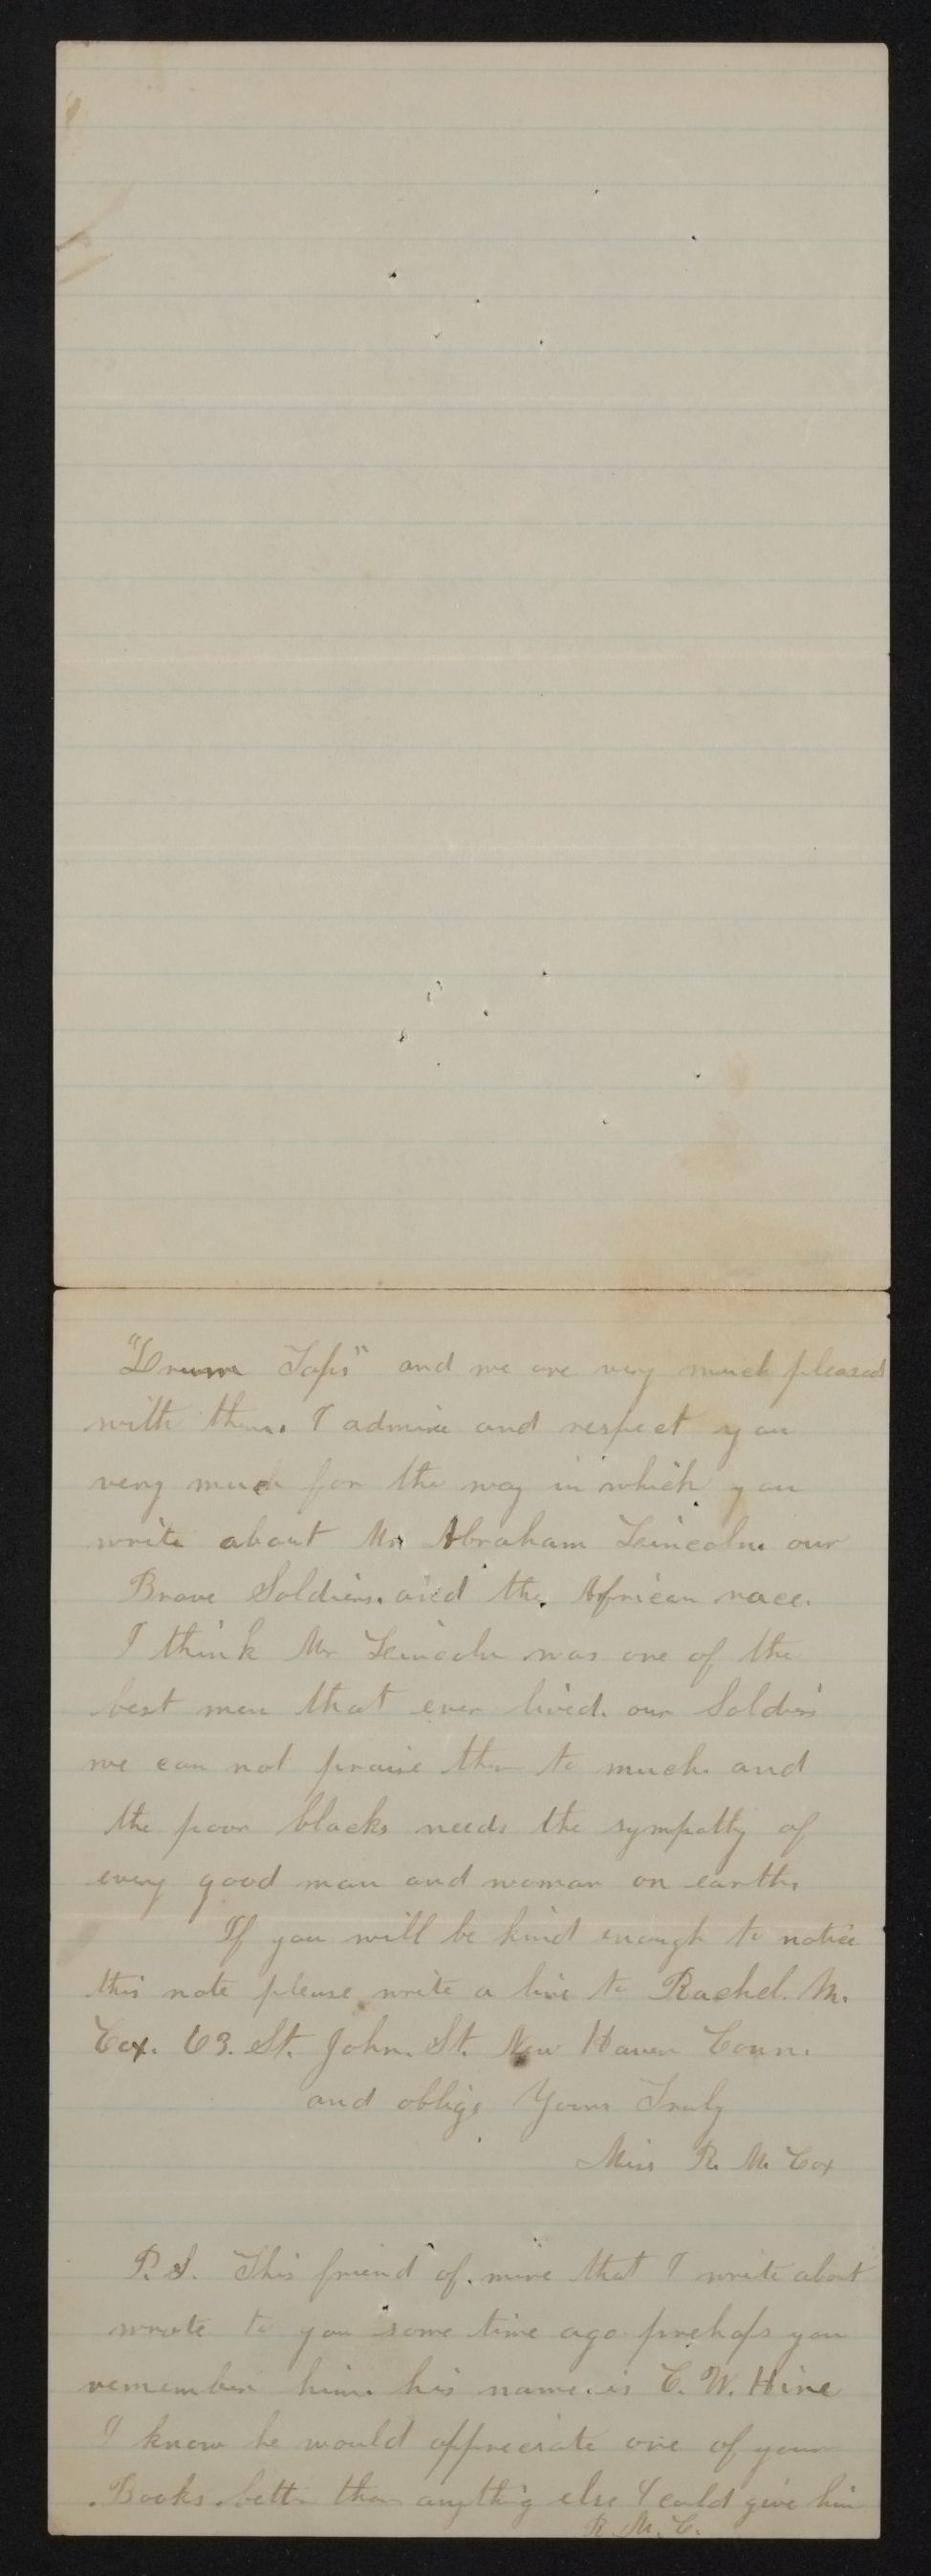 "Drum Taps" and we are very much pleased
with them. I admire and respect you
very much for the way in which you
write about Mr Abraham Leincoln our
Brave Soldiers. and the African race.
I think Mr Leincoln was one of the
best men that ever lived. our Soldiers
we can not praise them to much. and
the poor blacks needs the sympathy of
every good man and woman on earth.
If you will be kind enough to notice
this note please write a line to Rachel. M.
Cox. 63. St. John. St. New Haven Conn.
and oblige Yours Truly
Miss R. M. Cox
P. S. This friend of mine that I write about
wrote to you some time ago prehaps you
remember him. his name. is C. W. Hine
I know he would appreciate one of your
Books better than anything else I could give him
R. M. C.